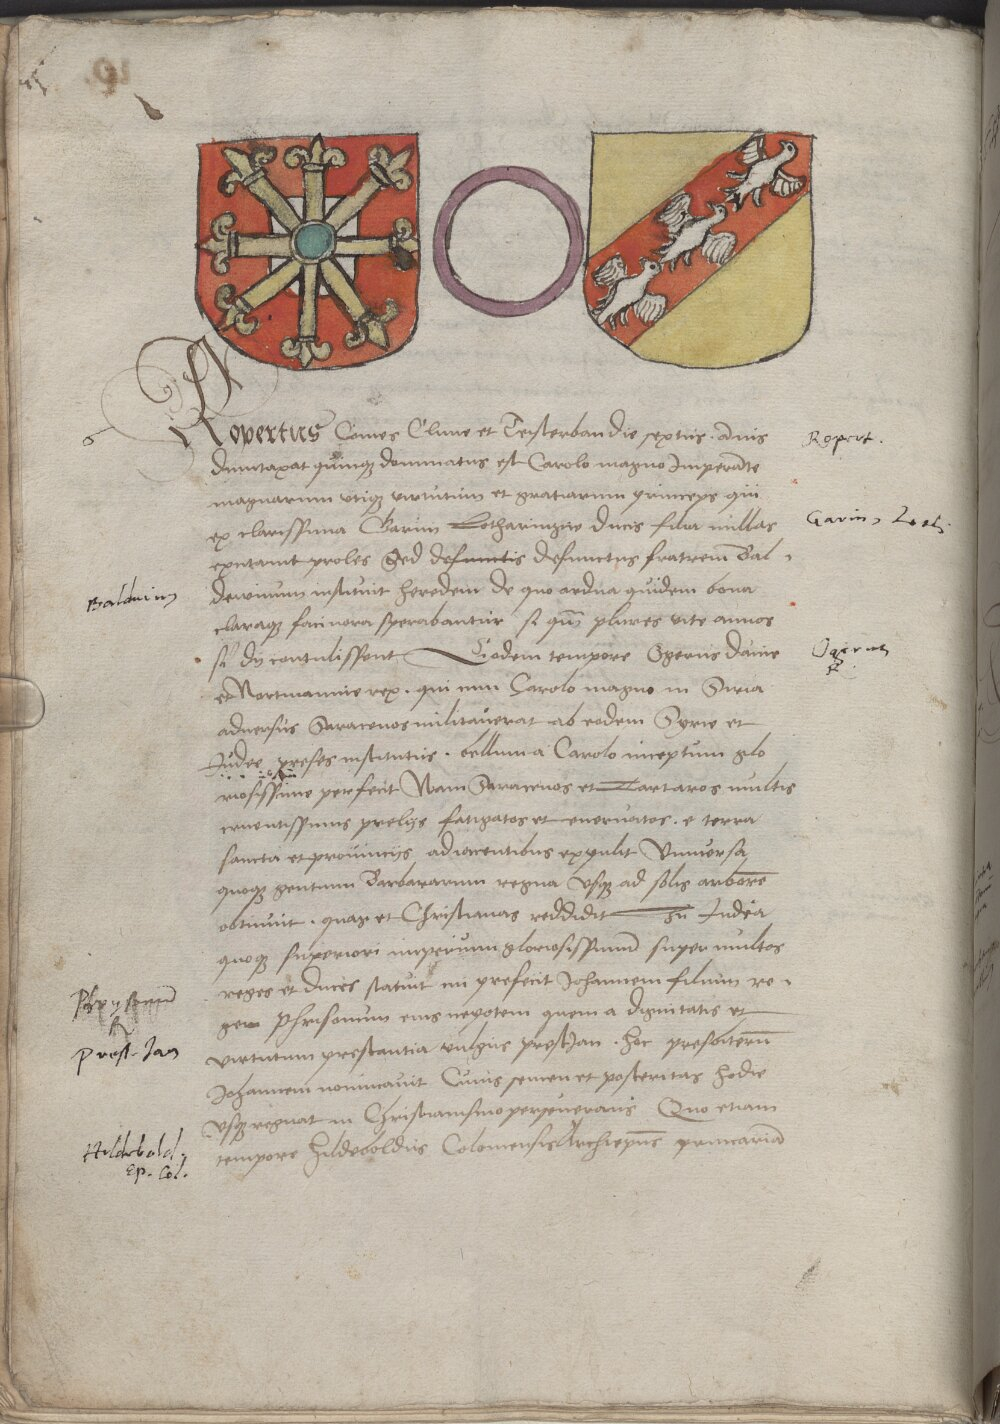 6
Ropertus Comes Clivie et Teisterbandie septus. annis
duntaxat quinqz dominatus est Carolo magno Imperate
magnarum utiqz virtutum et gratiarum princeps qui
ex clarissima Garini Lotharingie ducis filia nullas
expectavit proles Sed defunctis defunctus fratrem Bal
dewinum instituit heredem de quo ardua quidem bona
claraqz facinora sperabantur si qui plures vite annos
si dij contulissent Eodem tempore Ogerus danie
et Nortmannie rex. qui cum Carolo magno in Siria
adversus Saracenos militaverat ab eodem Syrie et
Iudee preses institutus. bellum a Carolo inceptum glo
riosissime perfecit Nam Saracenos et Tartaros multis
cruentissimis prelijs fatigatos et enervatos. e terra
sancta et provincijs adiacentibus expulit Universa
quoqz gentium Barbararum regna usqz ad solis arbore
obtinuit. quas et Christianas reddidit In Iudea
quoqz superiori imperium gloriosissimum super multos
reges et duces statuit cui prefecit Iohannem filium re
gem Phrisonum eius nepotem quem a dignitatis et
virtutum prestantia vulgus prest Ian. hoc presbiterum
Iohannem nominavit Cuius semen et posteritas hodie
usqz regnat in Christianismo perseverans Quo etiam
tempore Hildeboldus Coloniensis Archiepus primariam
Ropert.
Garin, Loth.
Baldwin
Ogerus
R
R
Prest. Jan
Hildebald.
Ep. Col.